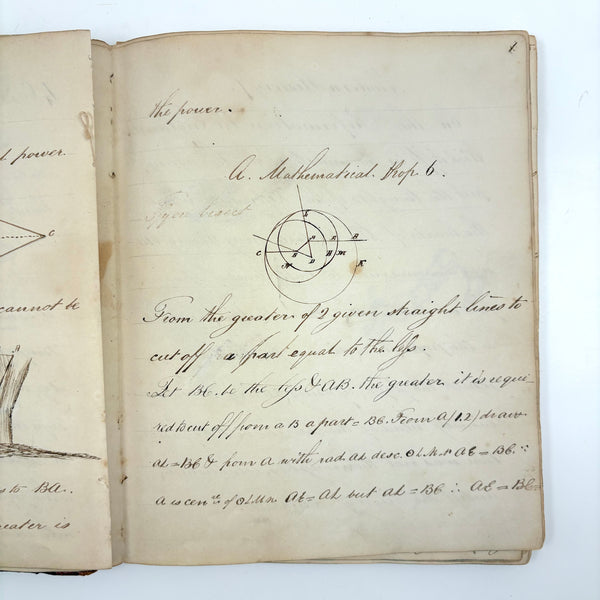 d power.
C
cannot be
s to BA.
reater is
1
the power.
A. Mathematical. Prop. 6.
bisect
C
B
D
H
M
K
From the greater of 2 given straight lines to
cut off a part equal to the less.
Let BC. be the less & AB. the greater it is requi-
red to cut off from a B a part = BC. From A (1.2) draw
AL = BC & from A with rad. AL desc. LM AE = BC. ∵
A is cen. of AE = AL but AL = BC ∴ AE = BC =